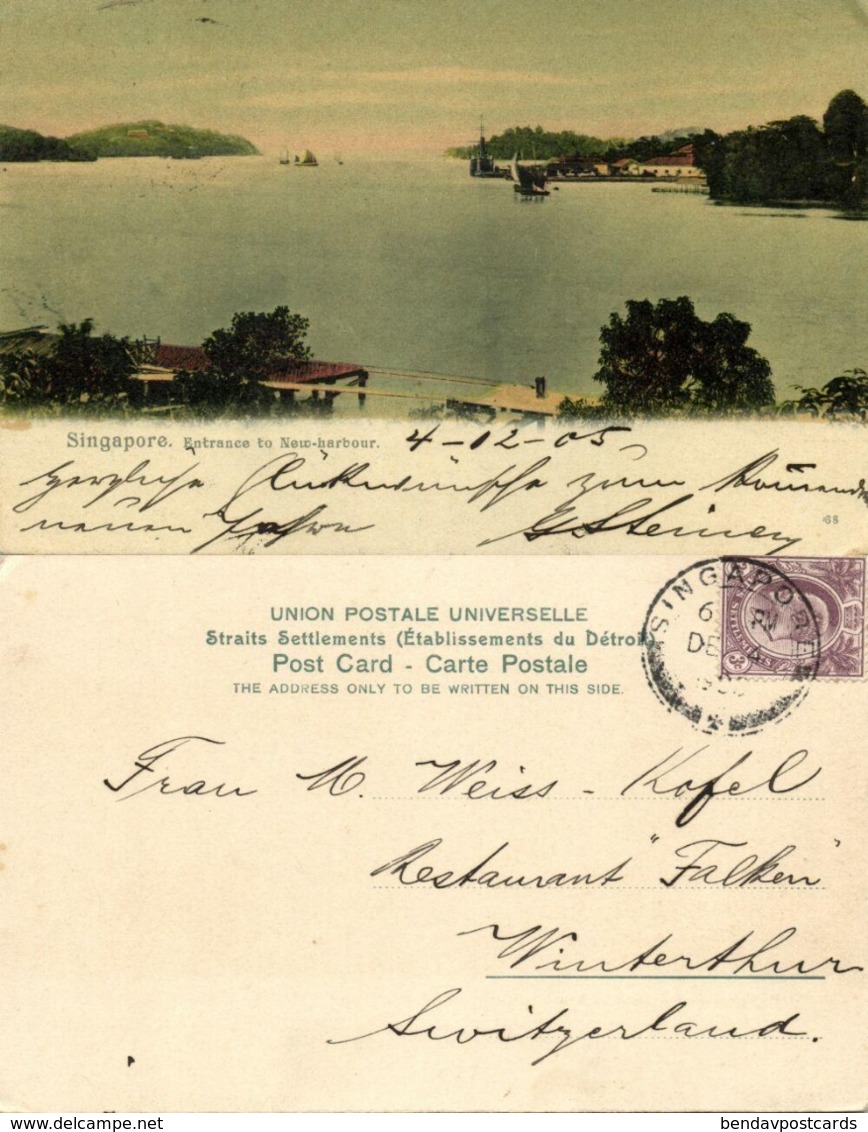 Singapore. Entrance to New-harbour. 4-12-05
Herzliche Glückwünsche zum
neuen Jahre G. Steiner
68
UNION POSTALE UNIVERSELLE
Straits Settlements (Établissements du Détroit)
Post Card - Carte Postale
THE ADDRESS ONLY TO BE WRITTEN ON THIS SIDE.
SINGAPORE
6 PM
DE 4
Frau M. Weiss - Kofel
Restaurant "Falken"
Winterthur
Switzerland.
delcampe.net
bendavpostcards